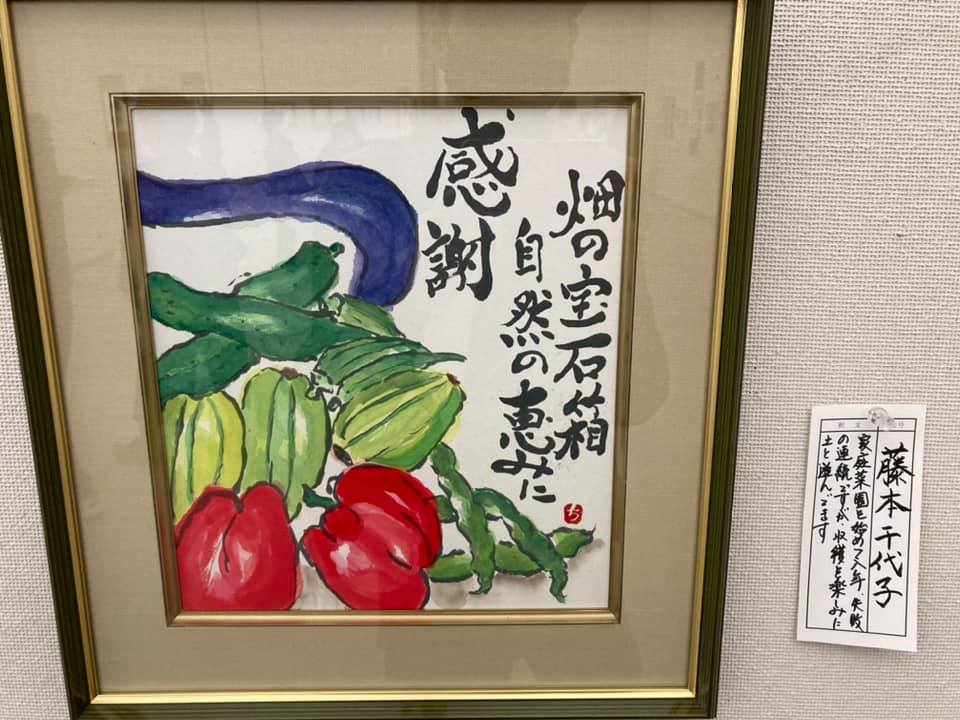 畑の宝石箱
自然の恵みに
感謝
ち
藤本千代子
家庭菜園を始めて八年、失敗
の連続ですが、収穫を楽しみに
土と遊んでます